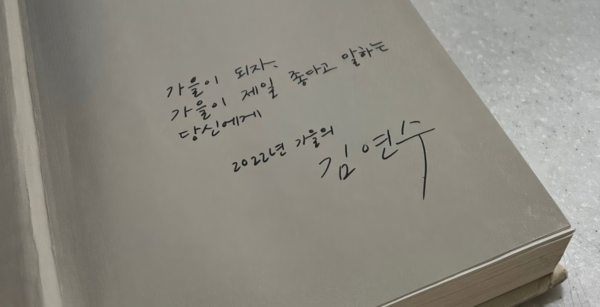 가을이 되자,
가을이 제일 좋다고 말하는
당신에게
2022년 가을의
김연수